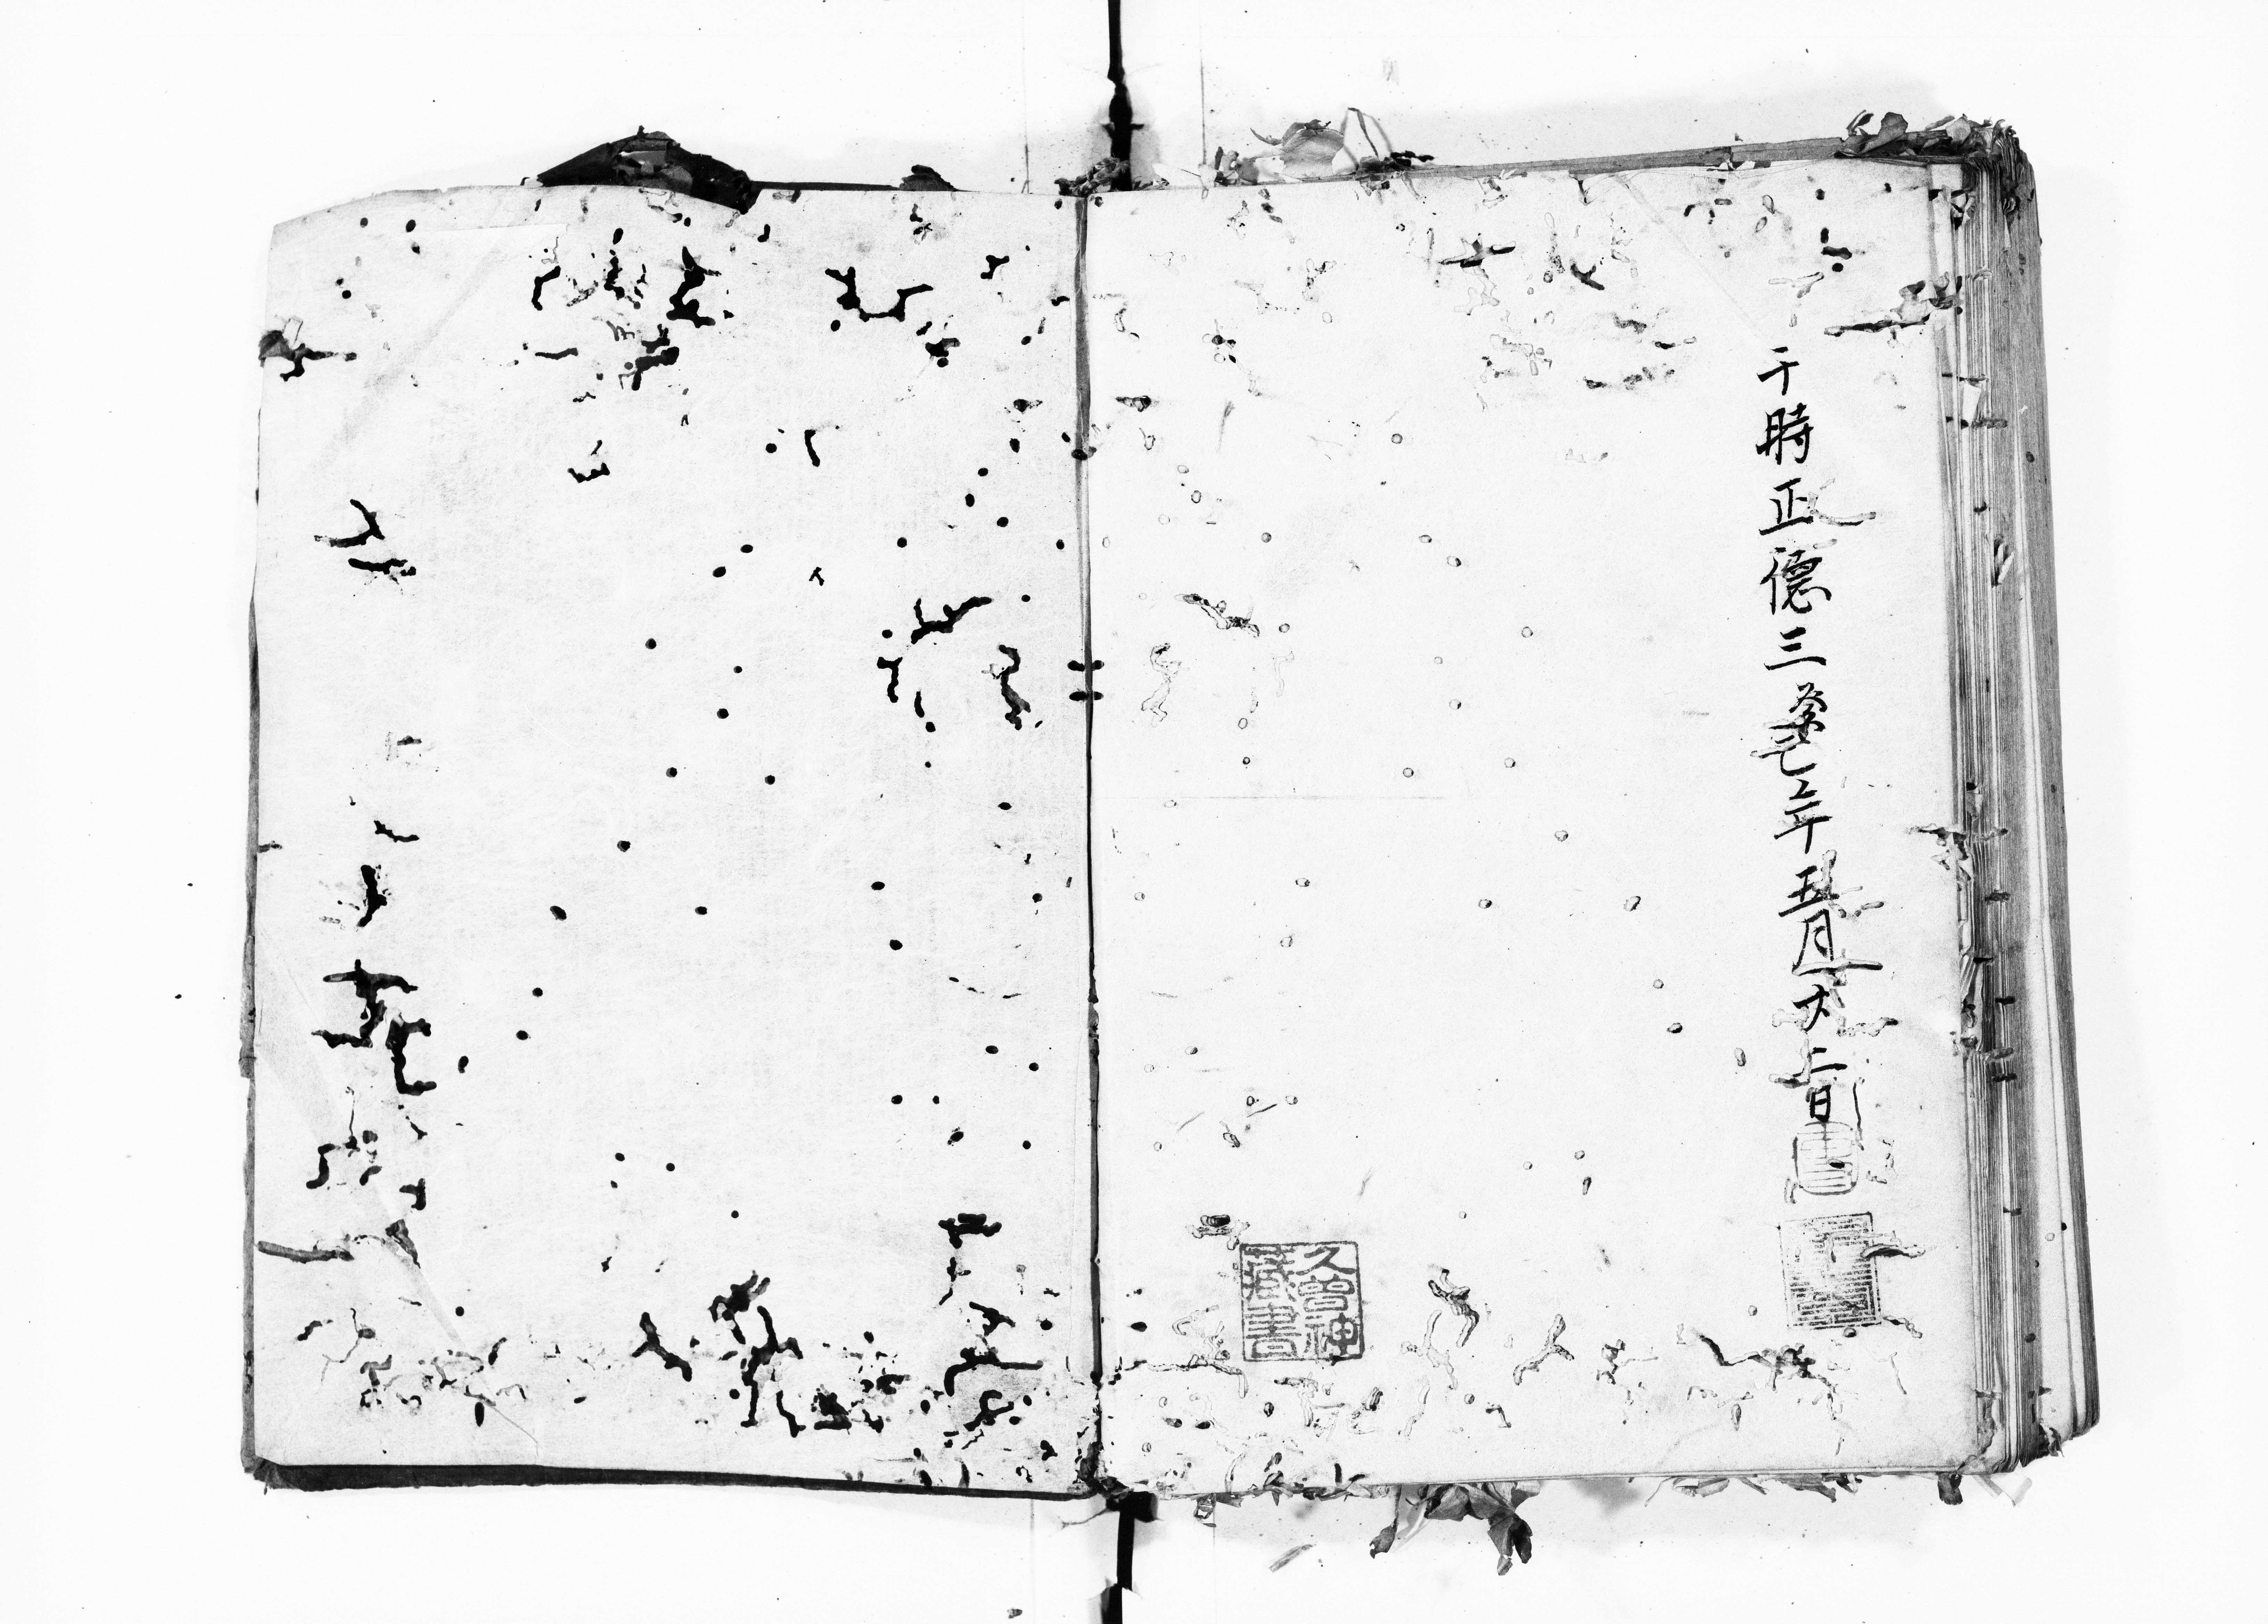 于時正德三癸巳年五月十二日
久曾神
藏書